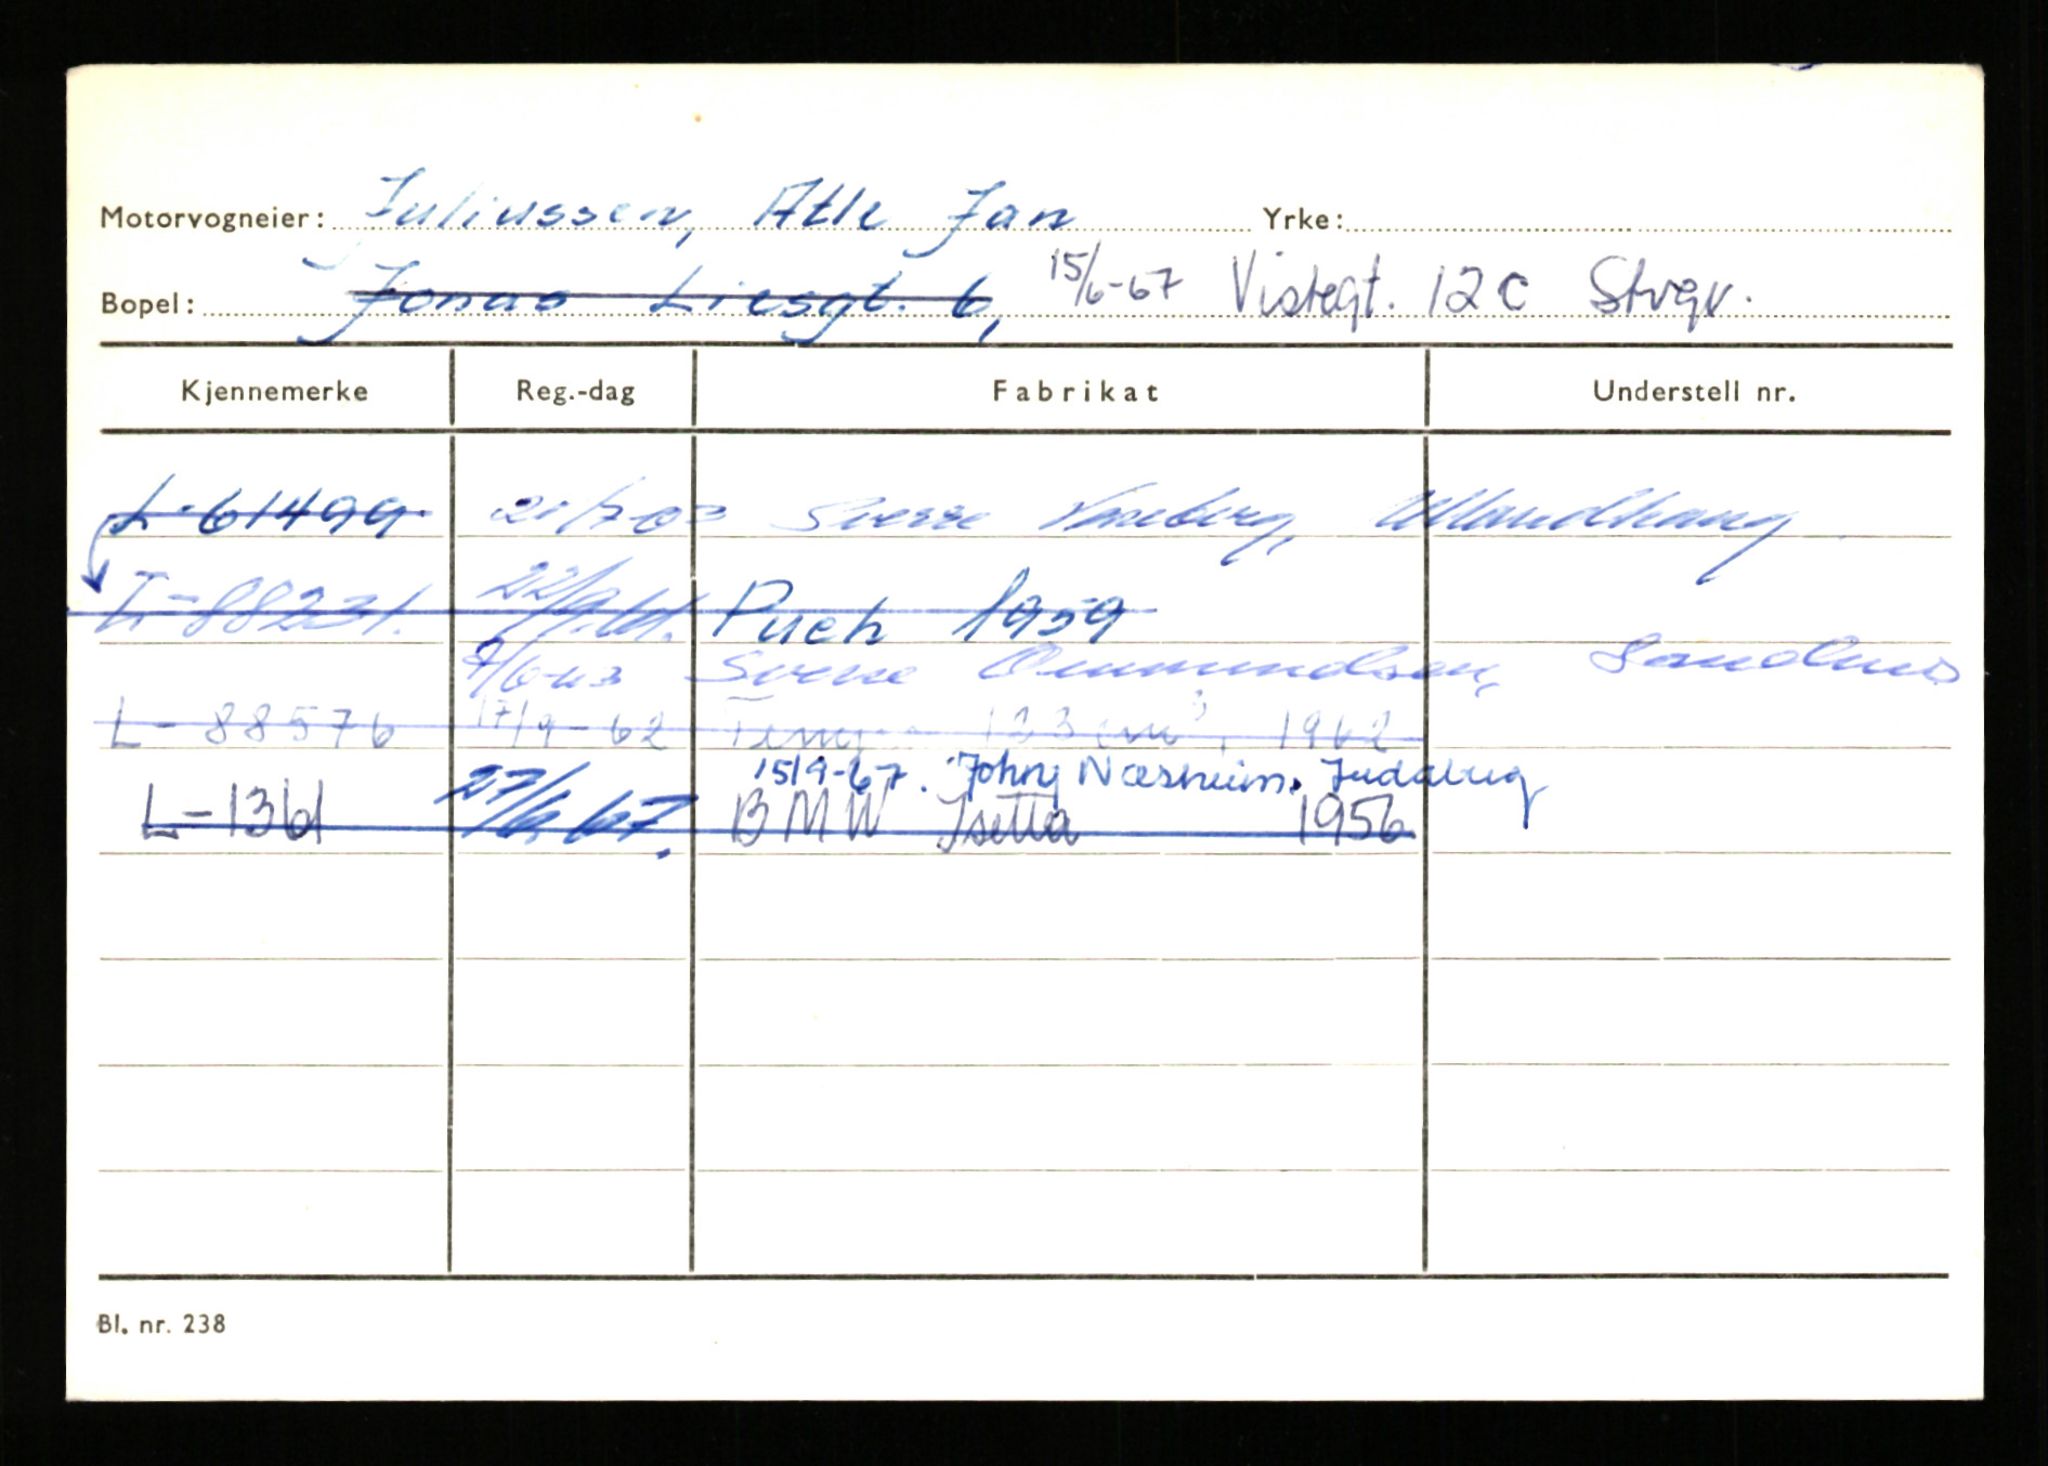 Motorvogneier: Juliussen, Atle Jan Yrke:
Bopel: Jonas Liesgt. 6, 15/6-67 Vistegt. 12 c Stvgr.
Kjennemerke Reg.-dag Fabrikat Understell nr.
L-61499 Sverre Ullandhaug
L-88231. Puch 1959
Sverre Ommundsen, Sandnes
L-88576 17/9-62 Tempo 123 cm³, 1962
15/9-67. Johny Næsheim.
L-1361 27/6 67. BMW Isetta 1956
Bl. nr. 238